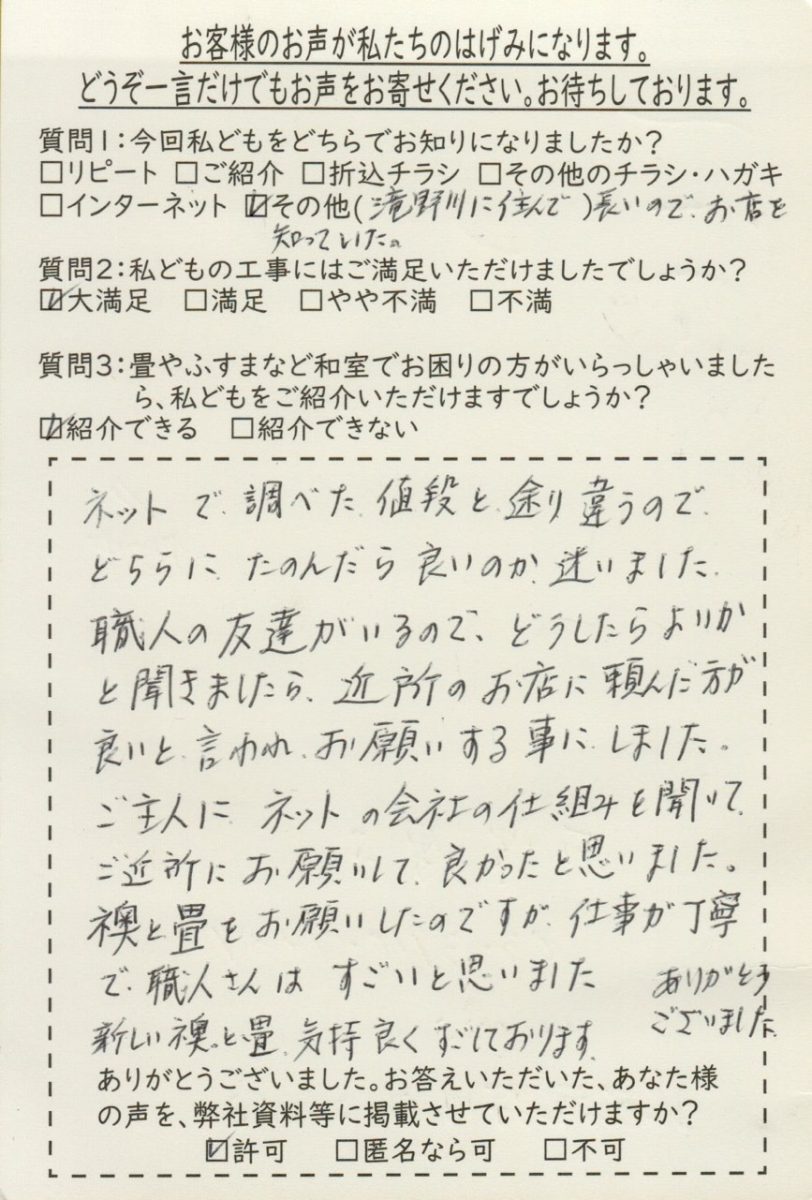 お客様のお声が私たちのはげみになります。
どうぞ一言だけでもお声をお寄せください。お待ちしております。
質問1:今回私どもをどちらでお知りになりましたか?
□リピート □ご紹介 □折込チラシ □その他のチラシ・ハガキ
□インターネット ☑その他(滝野川に住んで)長いので、お店を
知っていた。
質問2:私どもの工事にはご満足いただけましたでしょうか?
☑大満足 □満足 □やや不満 □不満
質問3:畳やふすまなど和室でお困りの方がいらっしゃいました
ら、私どもをご紹介いただけますでしょうか?
☑紹介できる □紹介できない
ネットで調べた値段と、余り違うので、
どちらにたのんだら良いのか迷いました
職人の友達がいるので、どうしたらよいか
と聞きましたら、近所のお店に頼んだ方が
良いと言われ、お願いする事にしました。
ご主人に ネットの会社の仕組みを聞いて
ご近所にお願いして、良かったと思いました。
襖と畳をお願いしたのですが、仕事が丁寧
で、職人さんは すごいと思いました
ありがとう
ございました
新しい襖と畳、気持良くすごしております
ありがとうございました。お答えいただいた、あなた様
の声を、弊社資料等に掲載させていただけますか?
☑許可 □匿名なら可 □不可